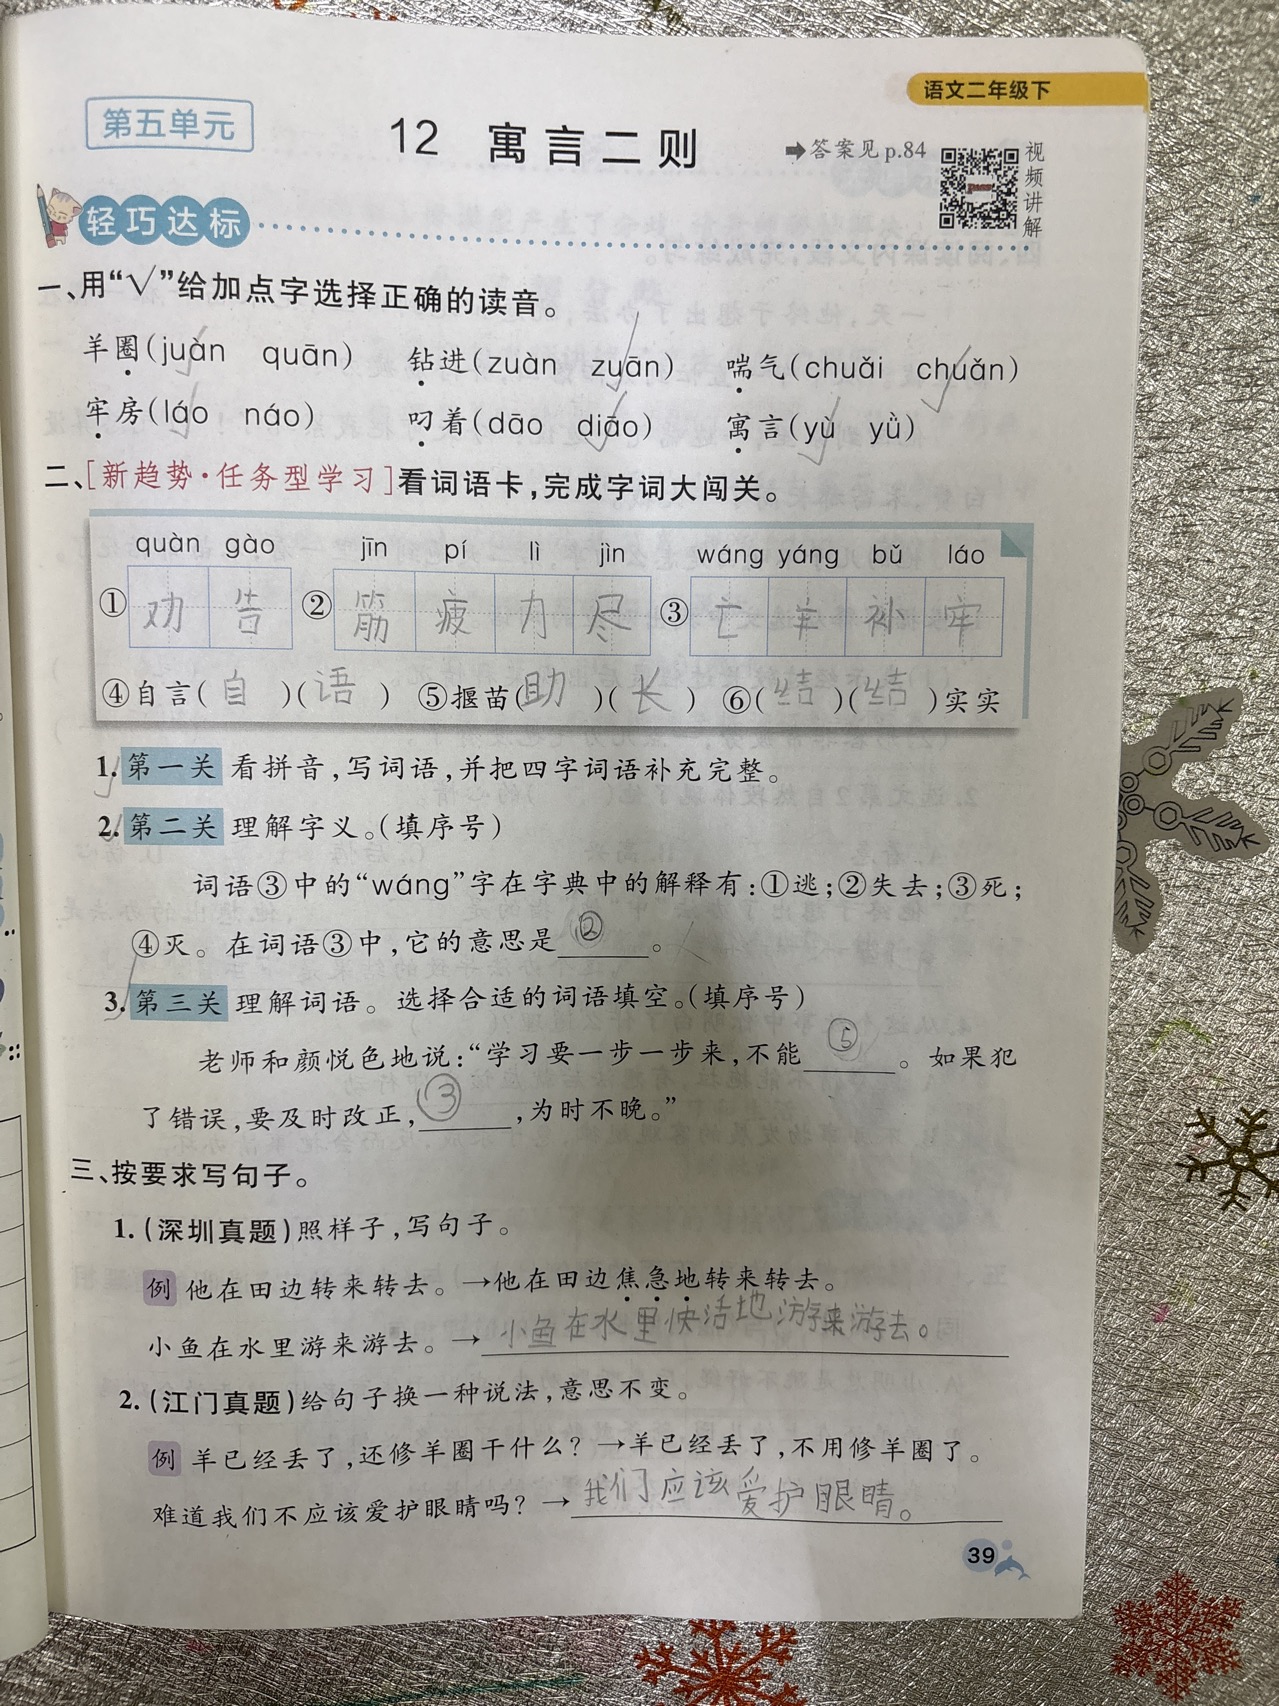 语文二年级下
第五单元
12 寓言二则
➡答案见p.84
视频讲解
轻巧达标
一、用“√”给加点字选择正确的读音。
羊圈(juàn quān) 钻进(zuàn zuān) 喘气(chuǎi chuǎn)
牢房(láo náo) 叼着(dāo diāo) 寓言(yù yǜ)
二、[新趋势·任务型学习]看词语卡,完成字词大闯关。
quàn gào jīn pí lì jìn wáng yáng bǔ láo
①劝告 ②筋疲力尽 ③亡羊补牢
④自言(自)(语) ⑤揠苗(助)(长) ⑥(结)(结)实实
1.第一关 看拼音,写词语,并把四字词语补充完整。
2.第二关 理解字义。(填序号)
词语③中的“wáng”字在字典中的解释有:①逃;②失去;③死;
④灭。在词语③中,它的意思是②。
3.第三关 理解词语。选择合适的词语填空。(填序号)
老师和颜悦色地说:“学习要一步一步来,不能⑤。如果犯
了错误,要及时改正,③,为时不晚。”
三、按要求写句子。
1.(深圳真题)照样子,写句子。
例 他在田边转来转去。→他在田边焦急地转来转去。
小鱼在水里游来游去。→小鱼在水里快活地游来游去。
2.(江门真题)给句子换一种说法,意思不变。
例 羊已经丢了,还修羊圈干什么?→羊已经丢了,不用修羊圈了。
难道我们不应该爱护眼睛吗?→我们应该爱护眼睛。
39